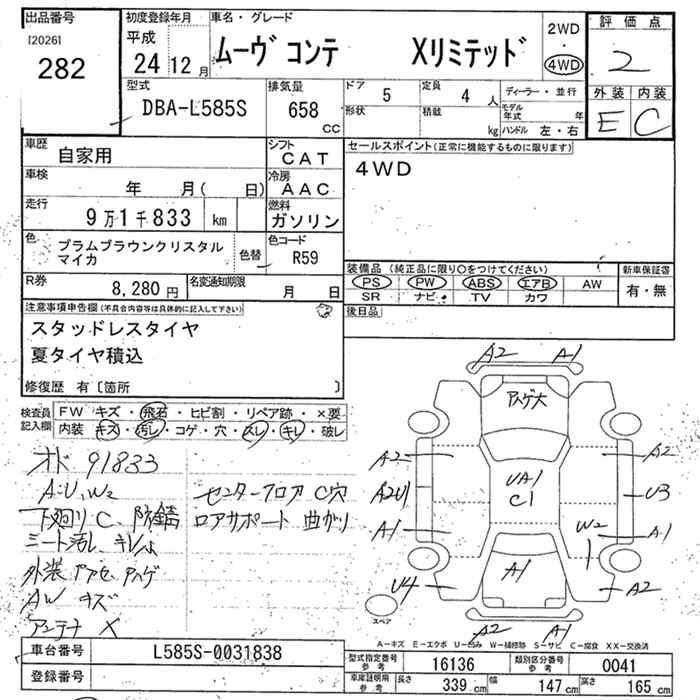 出品番号
[2026]
282
初度登録年月
平成
24 12 月
車名・グレード
ムーヴ コンテ Xリミテッド
2WD
・
4WD
評価点
2
外装 内装
E C
型式
DBA-L585S
排気量
658
CC
ドア
5
定員
4 人
形状
積載
kg
ディーラー・並行
モデル年式 年
ハンドル 左・右
車歴
自家用
シフト
CAT
車検
年 月( 日)
冷房
AAC
走行
9万1千833 km
燃料
ガソリン
色
プラムブラウンクリスタル
マイカ
色替
色コード
R59
R券
8,280 円
名変通知期限
月 日
セールスポイント(正常に機能するものに限ります)
4WD
装備品 (純正品に限り○をつけてください)
PS PW ABS エアB AW
SR ナビ TV カワ
新車保証書
有・無
後日品
注意事項申告欄(不具合内容等は具体的に記入して下さい)
スタッドレスタイヤ
夏タイヤ積込
修復歴 有〔箇所 〕
検査員
記入欄
FW キズ・飛石・ヒビ割・リペア跡・×要
内装 キズ・汚レ・コゲ・穴・スレ・キレ・破レ
オド 91833
A・U,W2
下廻り C、防錆
シート汚レ、キレ
外装
AW キズ
アンテナ X
センターフロア C穴
ロアサポート 曲がり
A2 A1
A2
A2U1
A1
U4
UA1
C1
A1
U3
W2
A1
A2
A2 A1
スペア
A-キズ E-エクボ U-凹み W-補修跡 S-サビ C-腐食 XX-交換済
車台番号
L585S-0031838
登録番号
型式指定番号
参考
16136
類別区分番号
参考
0041
車庫証明用
参考
長さ 339 cm
幅 147 cm
高さ 165 cm